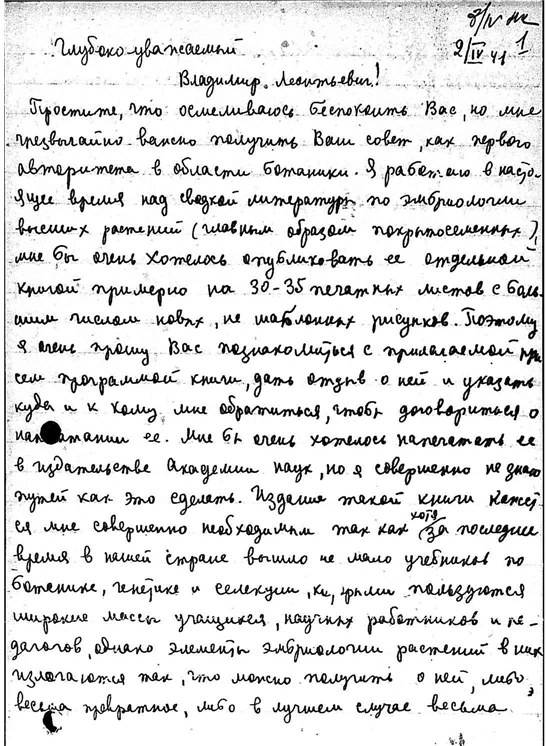 2/IV 41
1
Глубоко уважаемый
Владимир Леонтьевич!
Простите, что осмеливаюсь беспокоить Вас, но мне
чрезвычайно важно получить Ваш совет, как первого
авторитета в области ботаники. Я работаю в насто-
ящее время над сводкой литературы по эмбриологии
высших растений (главным образом покрытосеменных),
мне бы очень хотелось опубликовать ее отдельной
книгой примерно на 30-35 печатных листов с боль-
шим числом новых, не шаблонных рисунков. Поэтому
я очень прошу Вас познакомиться с прилагаемой при
сем программой книги, дать отзыв о ней и указать
куда и к кому мне обратиться, чтобы договориться о
напечатании ее. Мне бы очень хотелось напечатать ее
в издательстве Академии наук, но я совершенно не знаю
путей как это сделать. Издание такой книги кажет-
ся мне совершенно необходимым так как хотя за последнее
время в нашей стране вышло не мало учебников по
ботанике, генетике и селекции, к-рыми пользуются
широкие массы учащихся, научных работников и пе-
дагогов, однако элементы эмбриологии растений в них
излагаются так, что можно получить о ней, либо
весьма превратное, либо в лучшем случае весьма